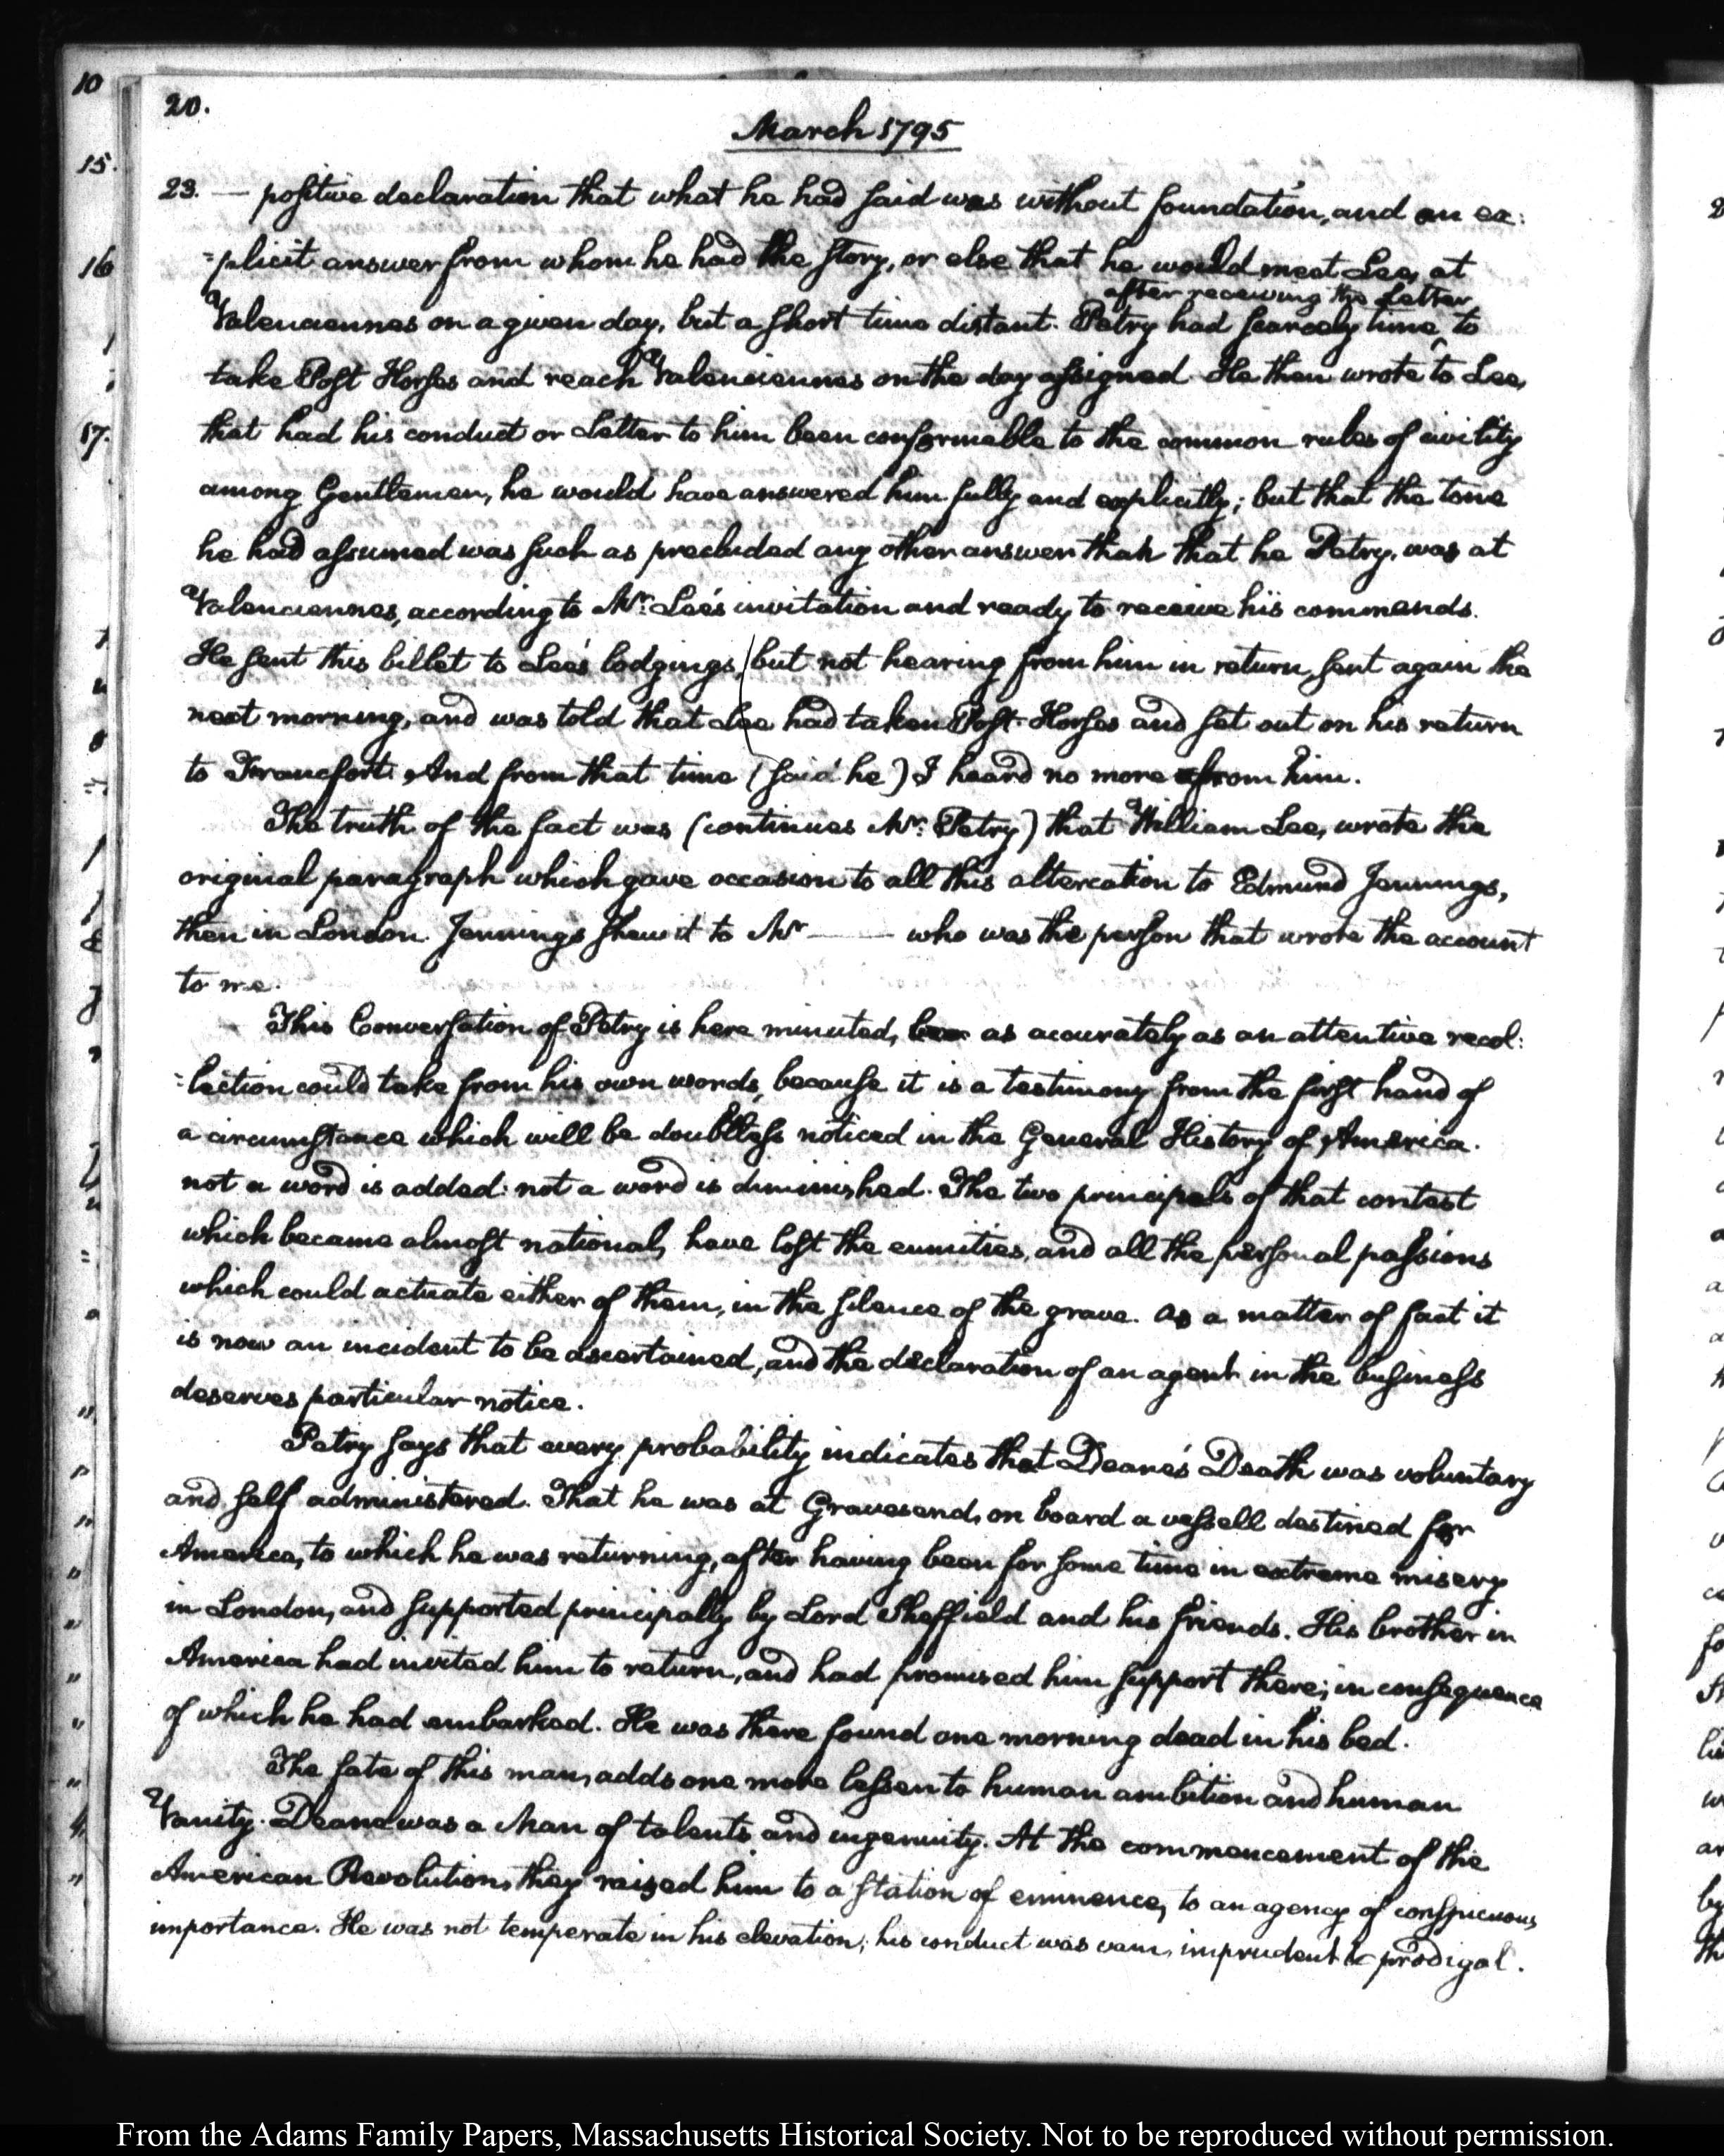 20.
March 1795
23. — positive declaration that what he had said was without foundation, and an ex:
=plicit answer from whom he had the story, or else that he would meet Lee, at
after receiving the Letter
Valenciennes on a given day, but a short time distant. Petry had scarcely time ^ to
take Post Horses and reach Valenciennes on the day assigned. He then wrote to Lee,
that had his conduct or Letter to him been conformable to the common rules of civility
among Gentlemen, he would have answered him fully and explicitly; but that the tone
he had assumed was such as precluded any other answer than that he Petry, was at
Valenciennes, according to Mr: Lee's invitation and ready to receive his commands.
He sent this billet to Lee's lodgings, but not hearing from him in return, sent again the
next morning, and was told that Lee had taken Post-Horses and set out on his return
to Francfort. And from that time (said he) I heard no more from him.
The truth of the fact was (continues Mr: Petry) that William Lee, wrote the
original paragraph which gave occasion to all this altercation to Edmund Jennings,
then in London. Jennings shew it to Mr —— who was the person that wrote the account
to me.
This Conversation of Petry is here minuted, as accurately as an attentive recol:
=lection could take from his own words, because it is a testimony from the first hand of
a circumstance which will be doubtless noticed in the General History of America.
not a word is added: not a word is diminished. The two principals of that contest
which became almost national, have lost the enmities, and all the personal passions
which could actuate either of them, in the silence of the grave. As a matter of fact it
is now an incident to be ascertained, and the declaration of an agent in the business
deserves particular notice.
Petry says that every probability indicates that Deane's Death was voluntary
and self administered. That he was at Gravesend, on board a vessell destined for
America, to which he was returning, after having been for some time in extreme misery
in London, and supported principally by Lord Sheffield and his friends. His brother in
America had invited him to return, and had promised him support there; in consequence
of which he had embarked. He was there found one morning dead in his bed.
The fate of this man, adds one more lesson to human ambition and human
Vanity. Deane was a Man of talents and ingenuity. At the commencement of the
American Revolution, they raised him to a station of eminence, to an agency of conspicuous
importance. He was not temperate in his elevation; his conduct was vain, imprudent & prodigal.
10
15.
16
17.
From the Adams Family Papers, Massachusetts Historical Society. Not to be reproduced without permission.